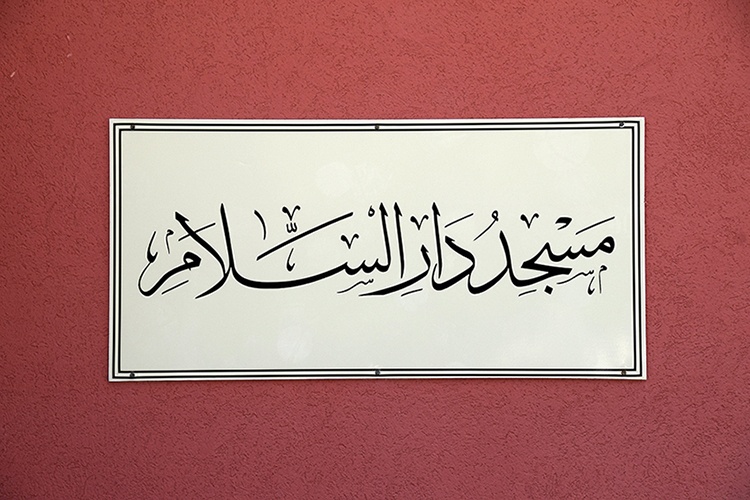 مَسْجِدُ دَارِ السَّلَامِ